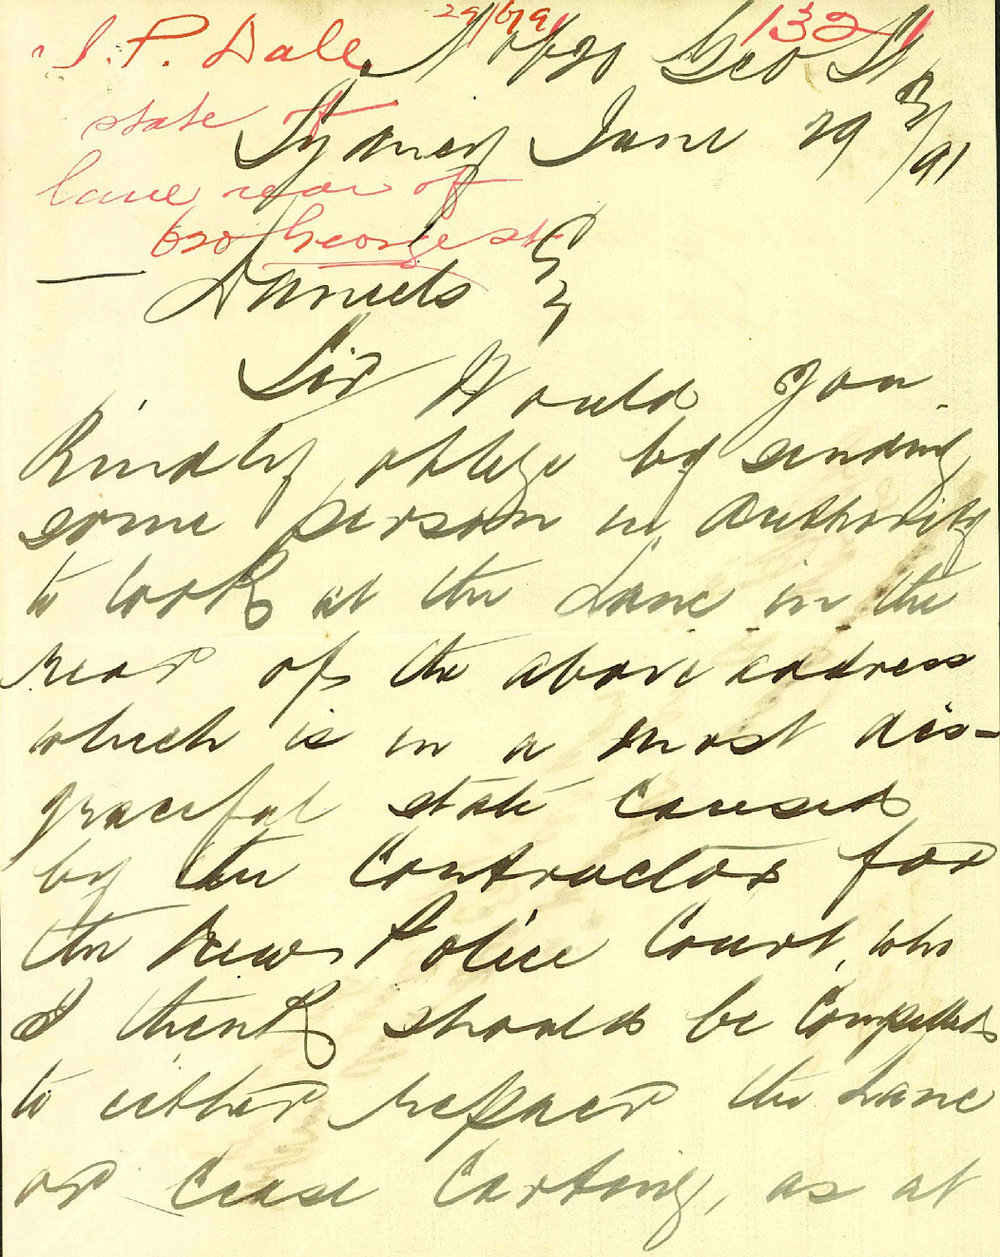 29/6/91 132
J. P. Dale No 620 Geo St
state of Sydney June 29 /91
lane rear of
620 George st
Daniels Esq
Sir Would you
kindly oblige by sending
some person in authority
to look at the Lane in the
rear of the above address
which is in a most dis-
graceful state caused
by the Contractor for
the New Police Court, who
I think should be compelled
to either repair the Lane
or cease carting, as at